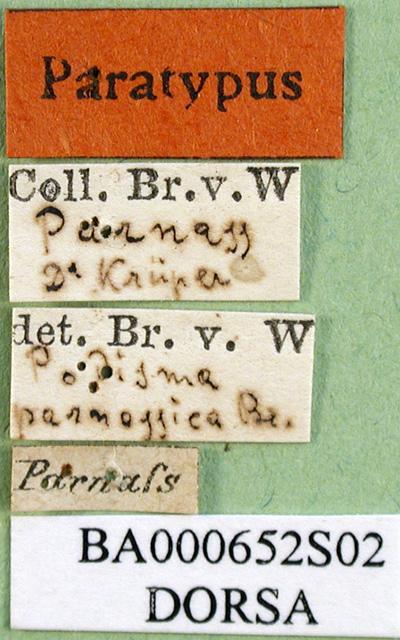 Paratypus
Coll. Br. v. W
Parnass
Dr Krüper
det. Br. v. W
Podisma
parnassica Br.
Parnaſs
BA000652S02
DORSA